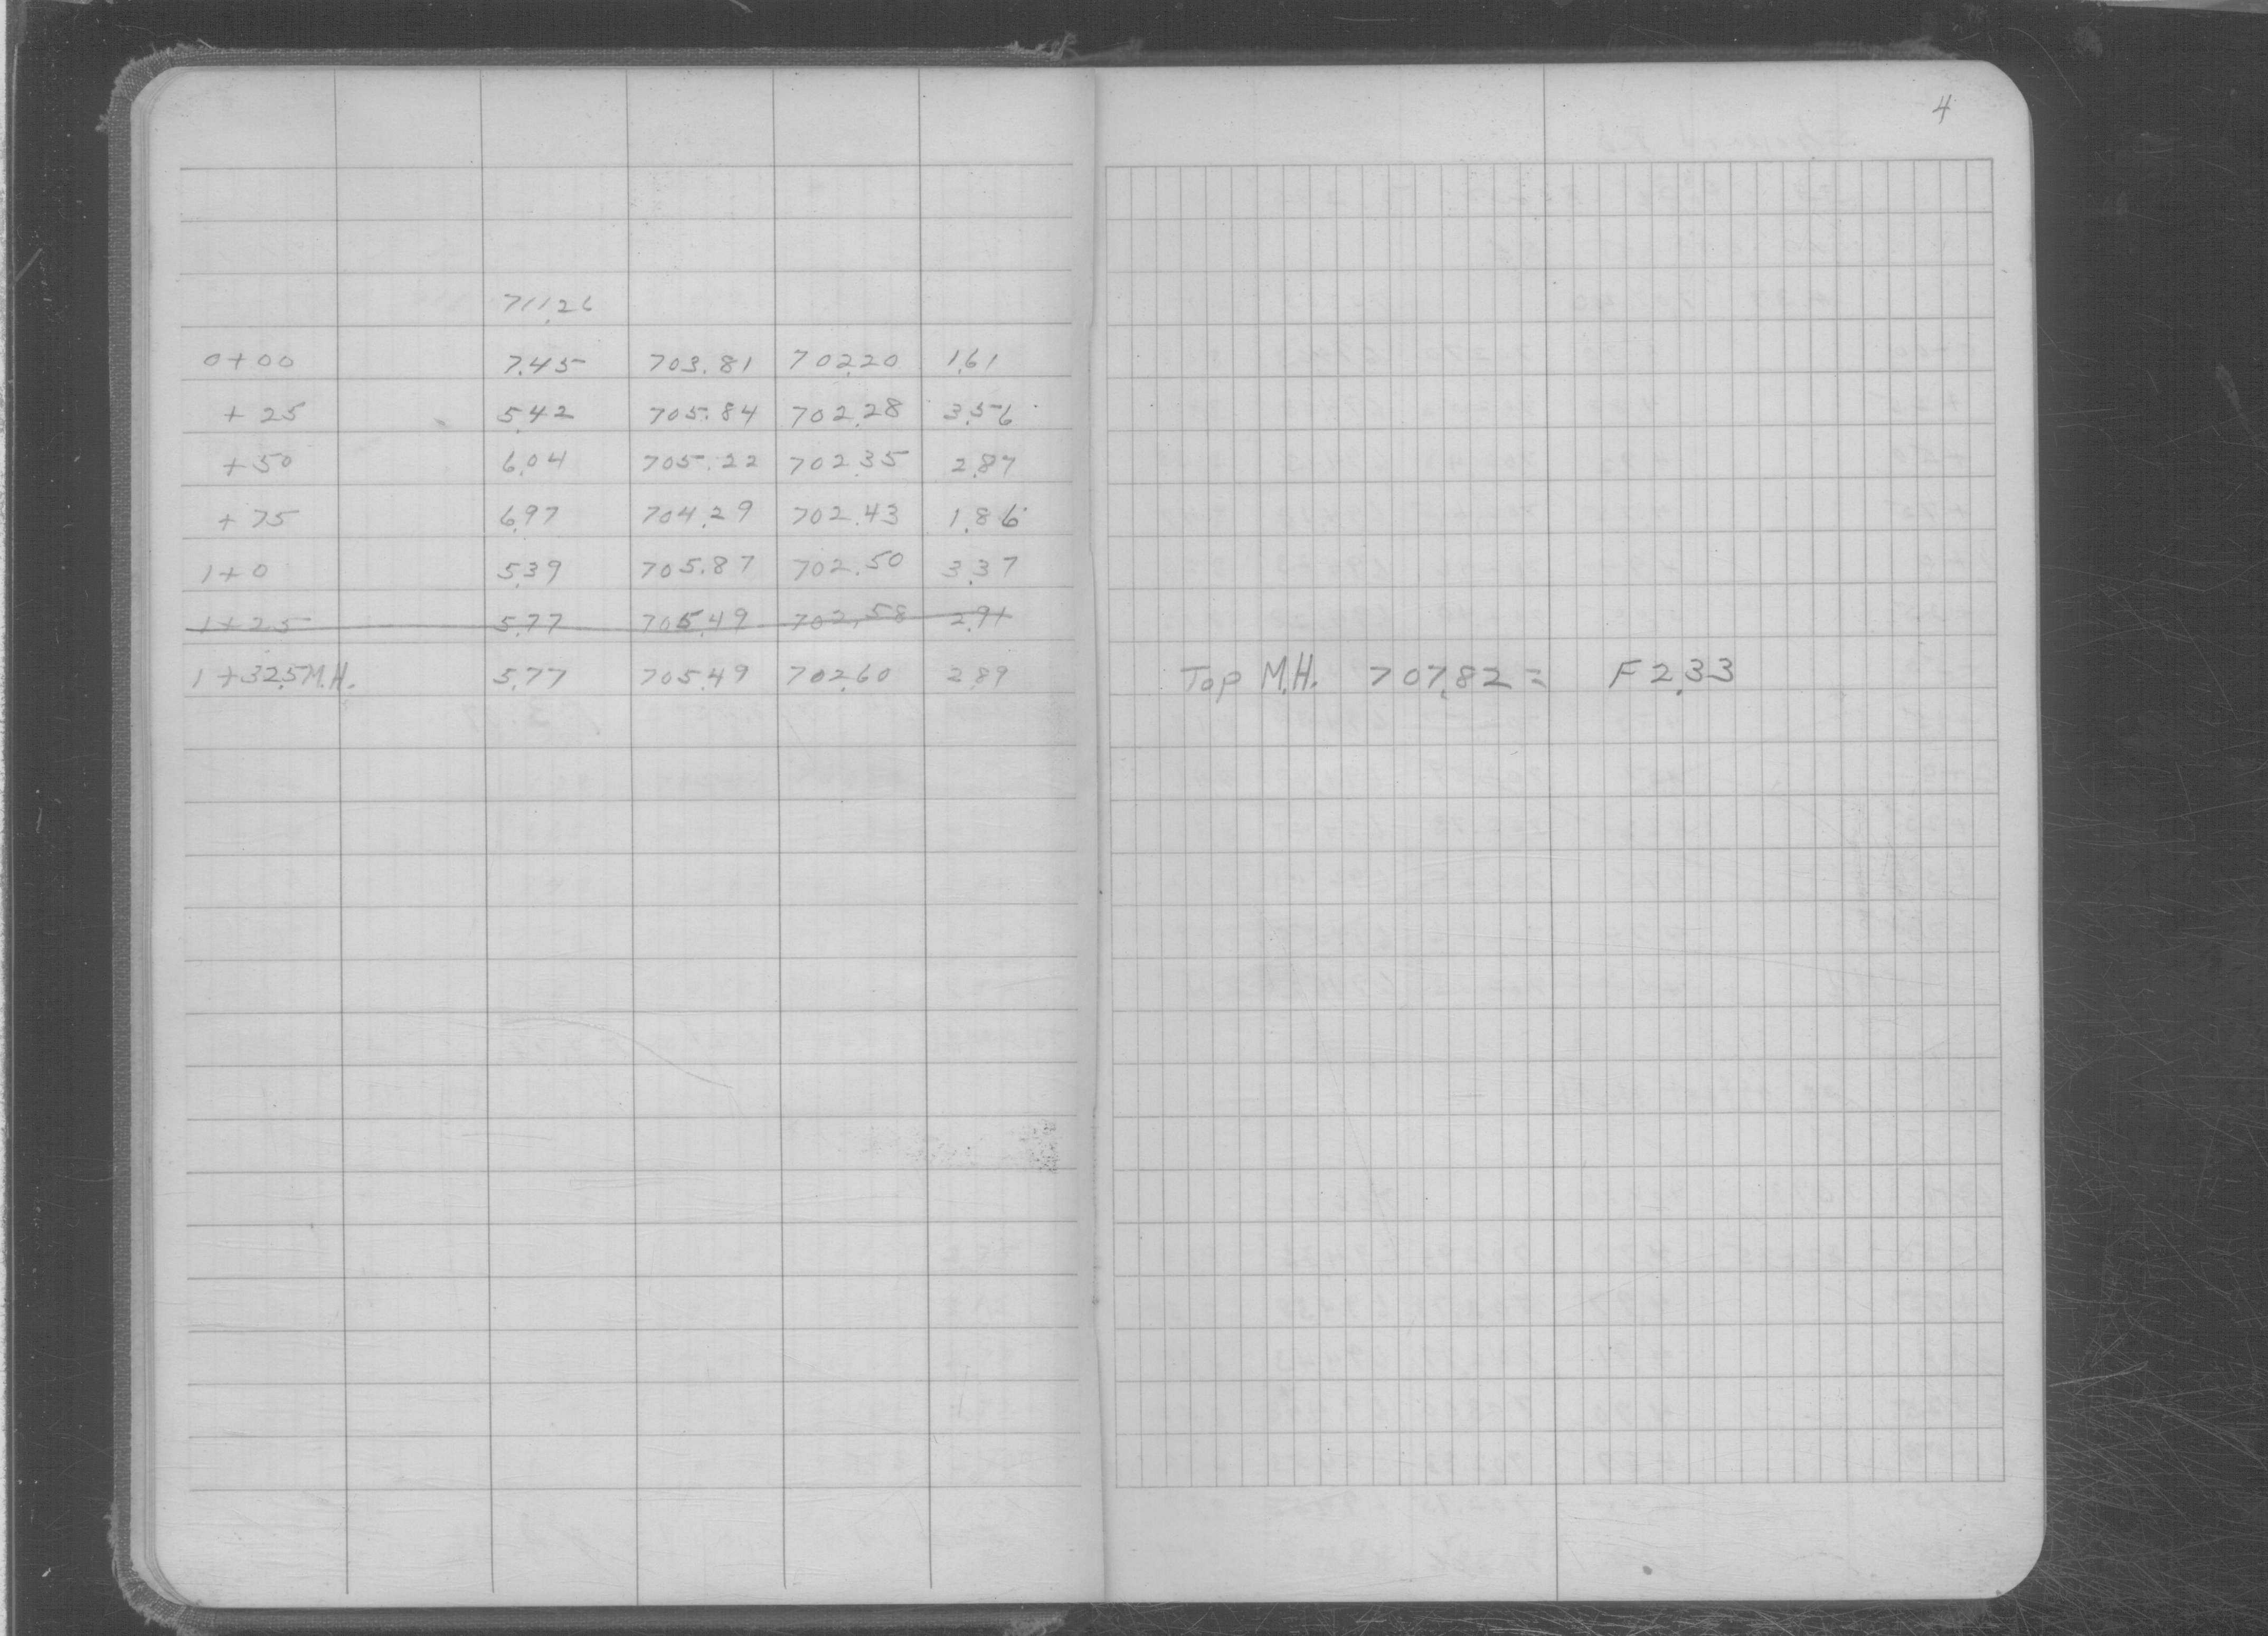 4
711.26
0+00 7.45 703.81 702.20 1.61
+25 5.42 705.84 702.28 3.56
+50 6.04 705.22 702.35 2.87
+75 6.97 704.29 702.43 1.86
1+0 5.39 705.87 702.50 3.37
1+25 5.77 705.49 702.58 2.91
1+32.5 M.H. 5.77 705.49 702.60 2.89 Top M.H. 707.82 = F 2.33